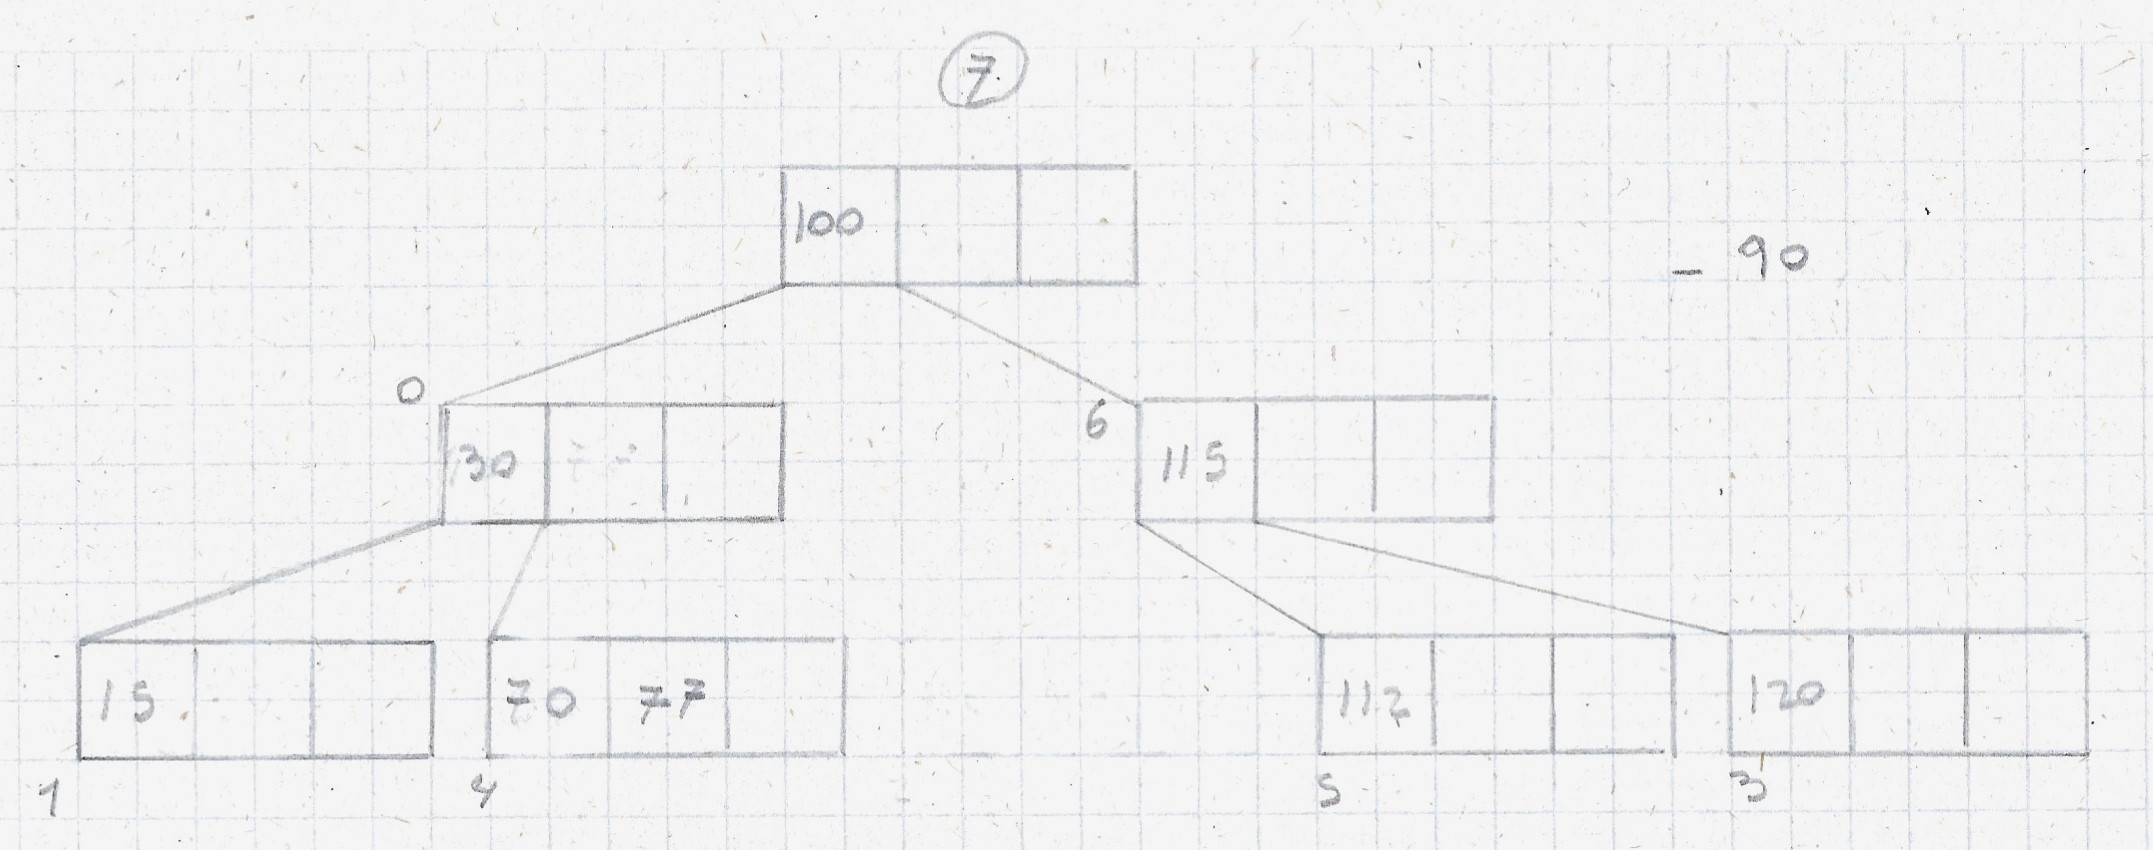 7
100
- 90
0
30
6
115
15
70 77
112
120
1
4
5
3